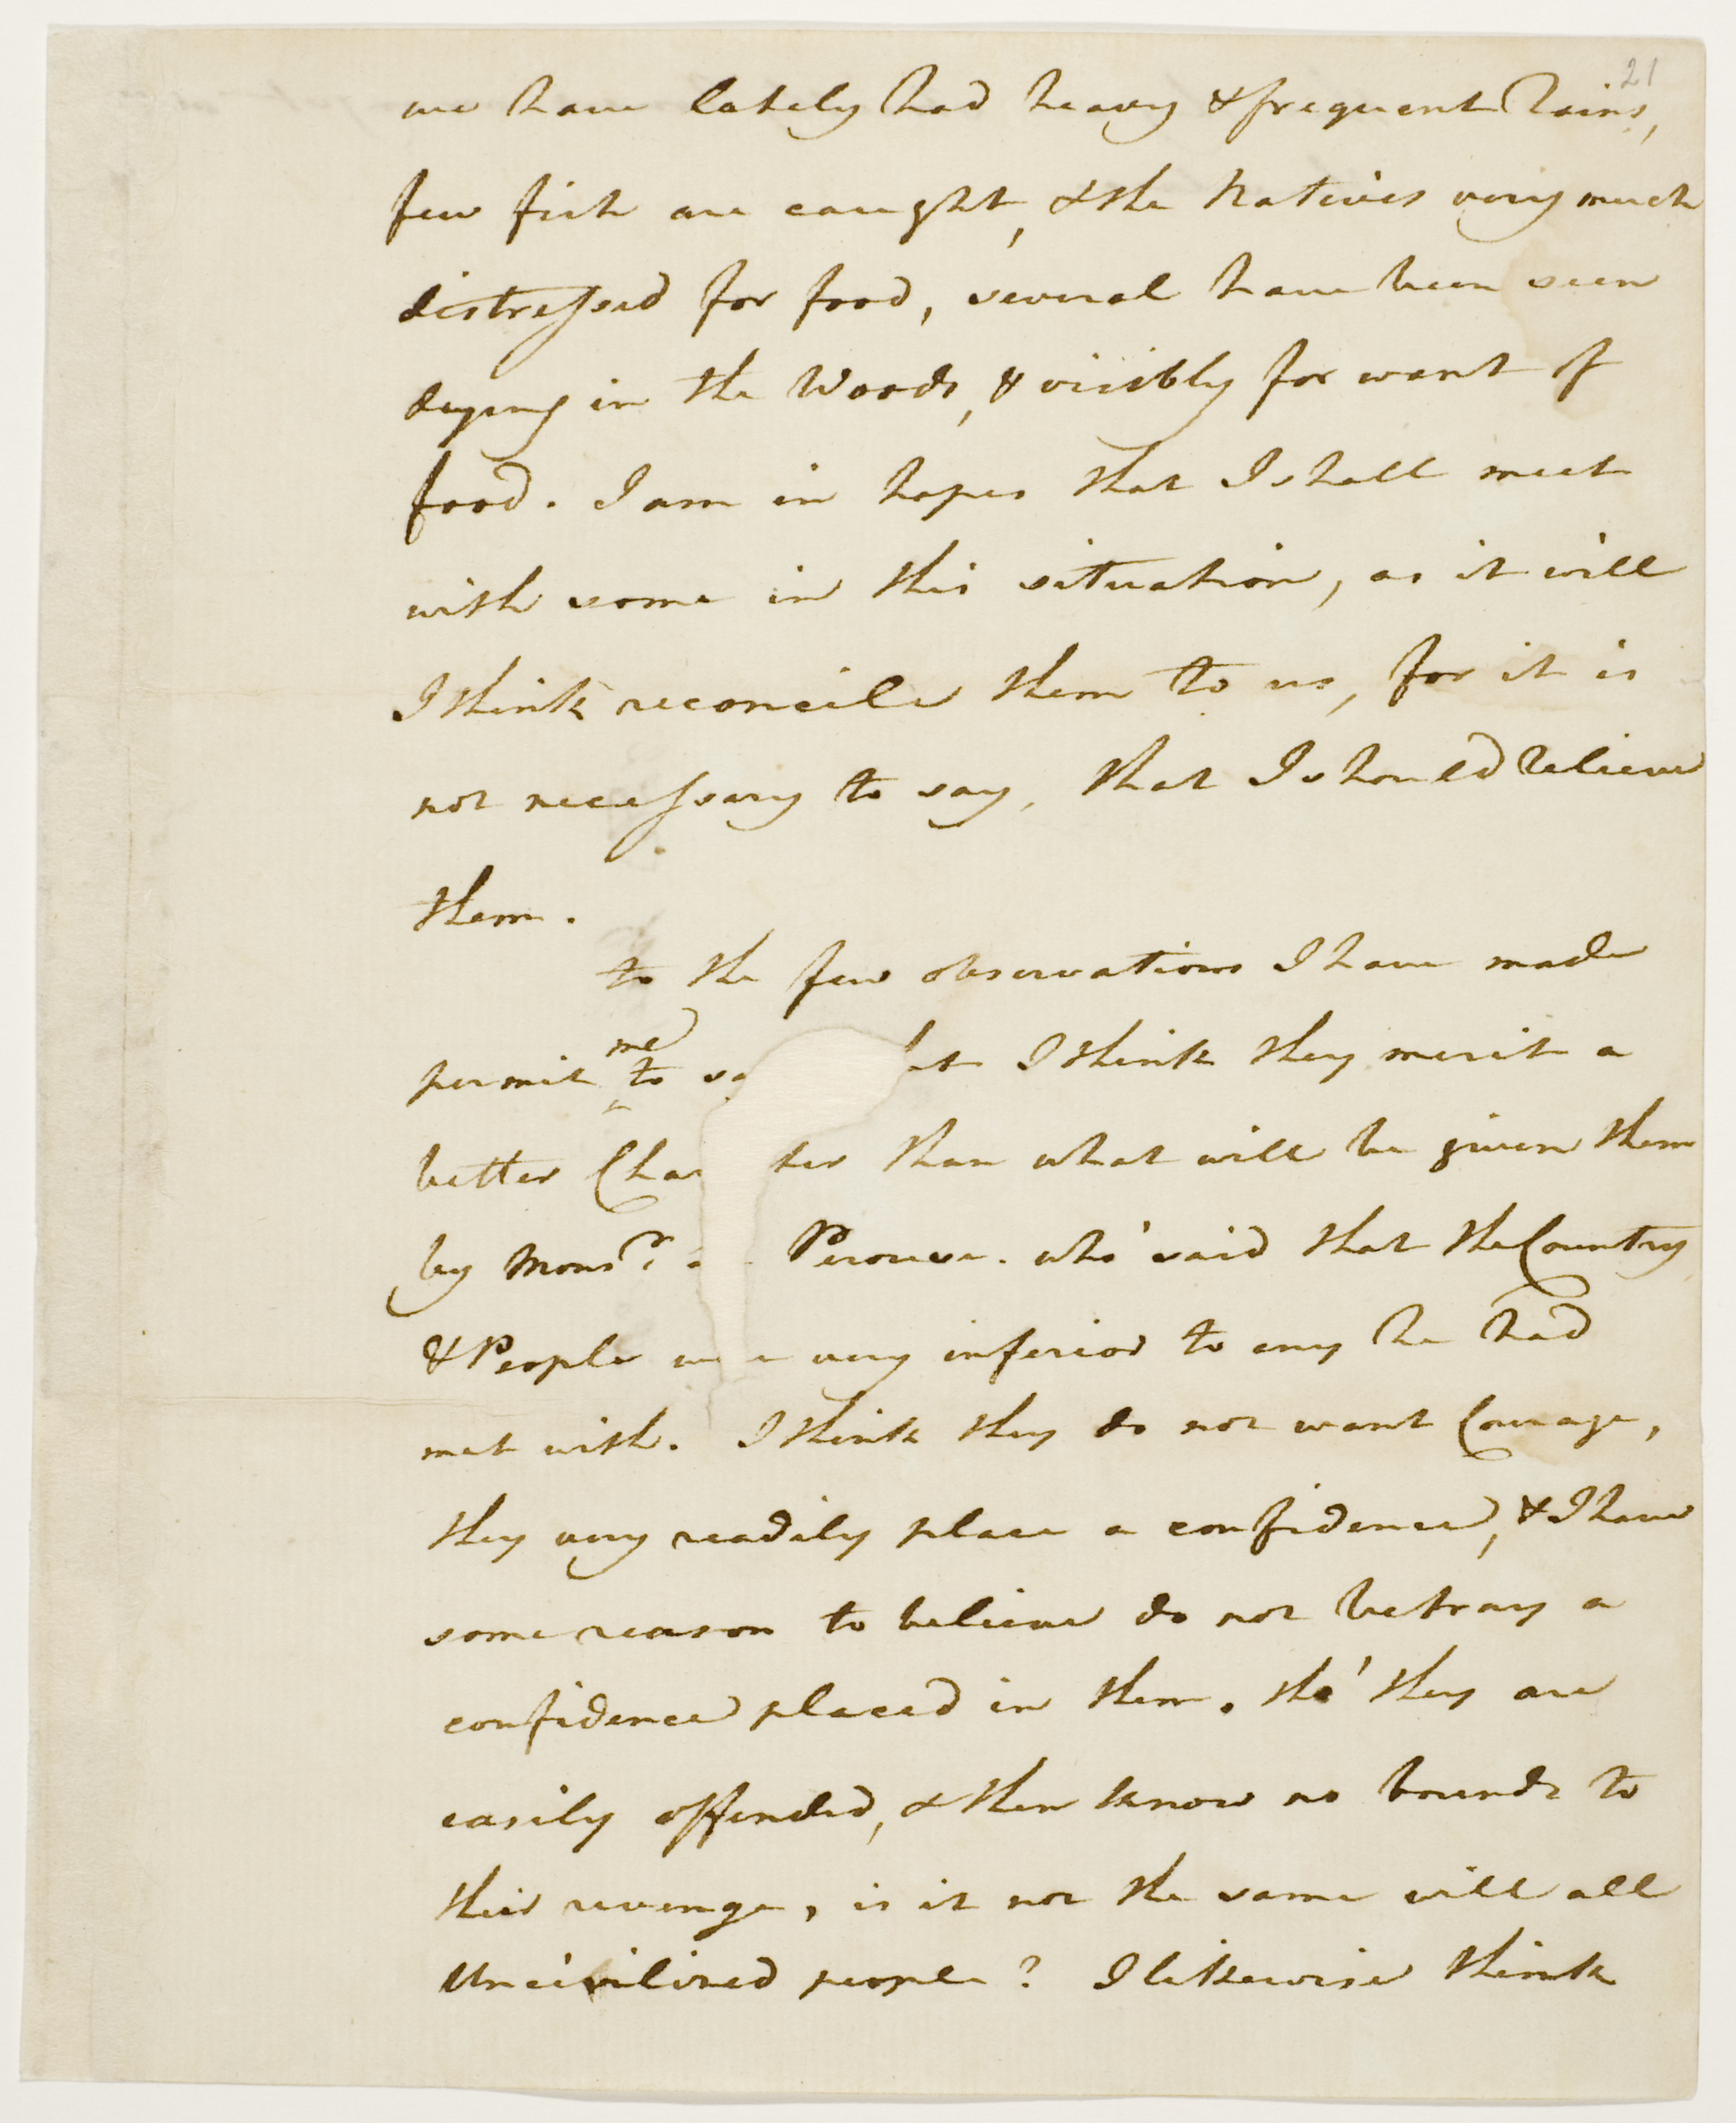 21
we have lately had heavy & frequent Rains,
few fish are caught, & the Natives very much
distressed for food, several have been seen
dyeing in the Woods, & visibly for want of
food. I am in hopes that I shall meet
with some in this situation, as it will
I think reconcile them to us, for it is
not necessary to say, that I should Relieve
them.
to the few observations I have made
me
permit to I think they merit a
better than what will be given them
by Monsr. Perouse. who said that the Country
& People very inferior to any he had
met with. I think they do not want Courage,
they very readily place a confidence, & I have
some reason to believe do not betray a
confidence placed in them. tho' they are
easily offended, & then know no bounds to
their revenge, is it not the same will all
Uncivilized people? I likewise think